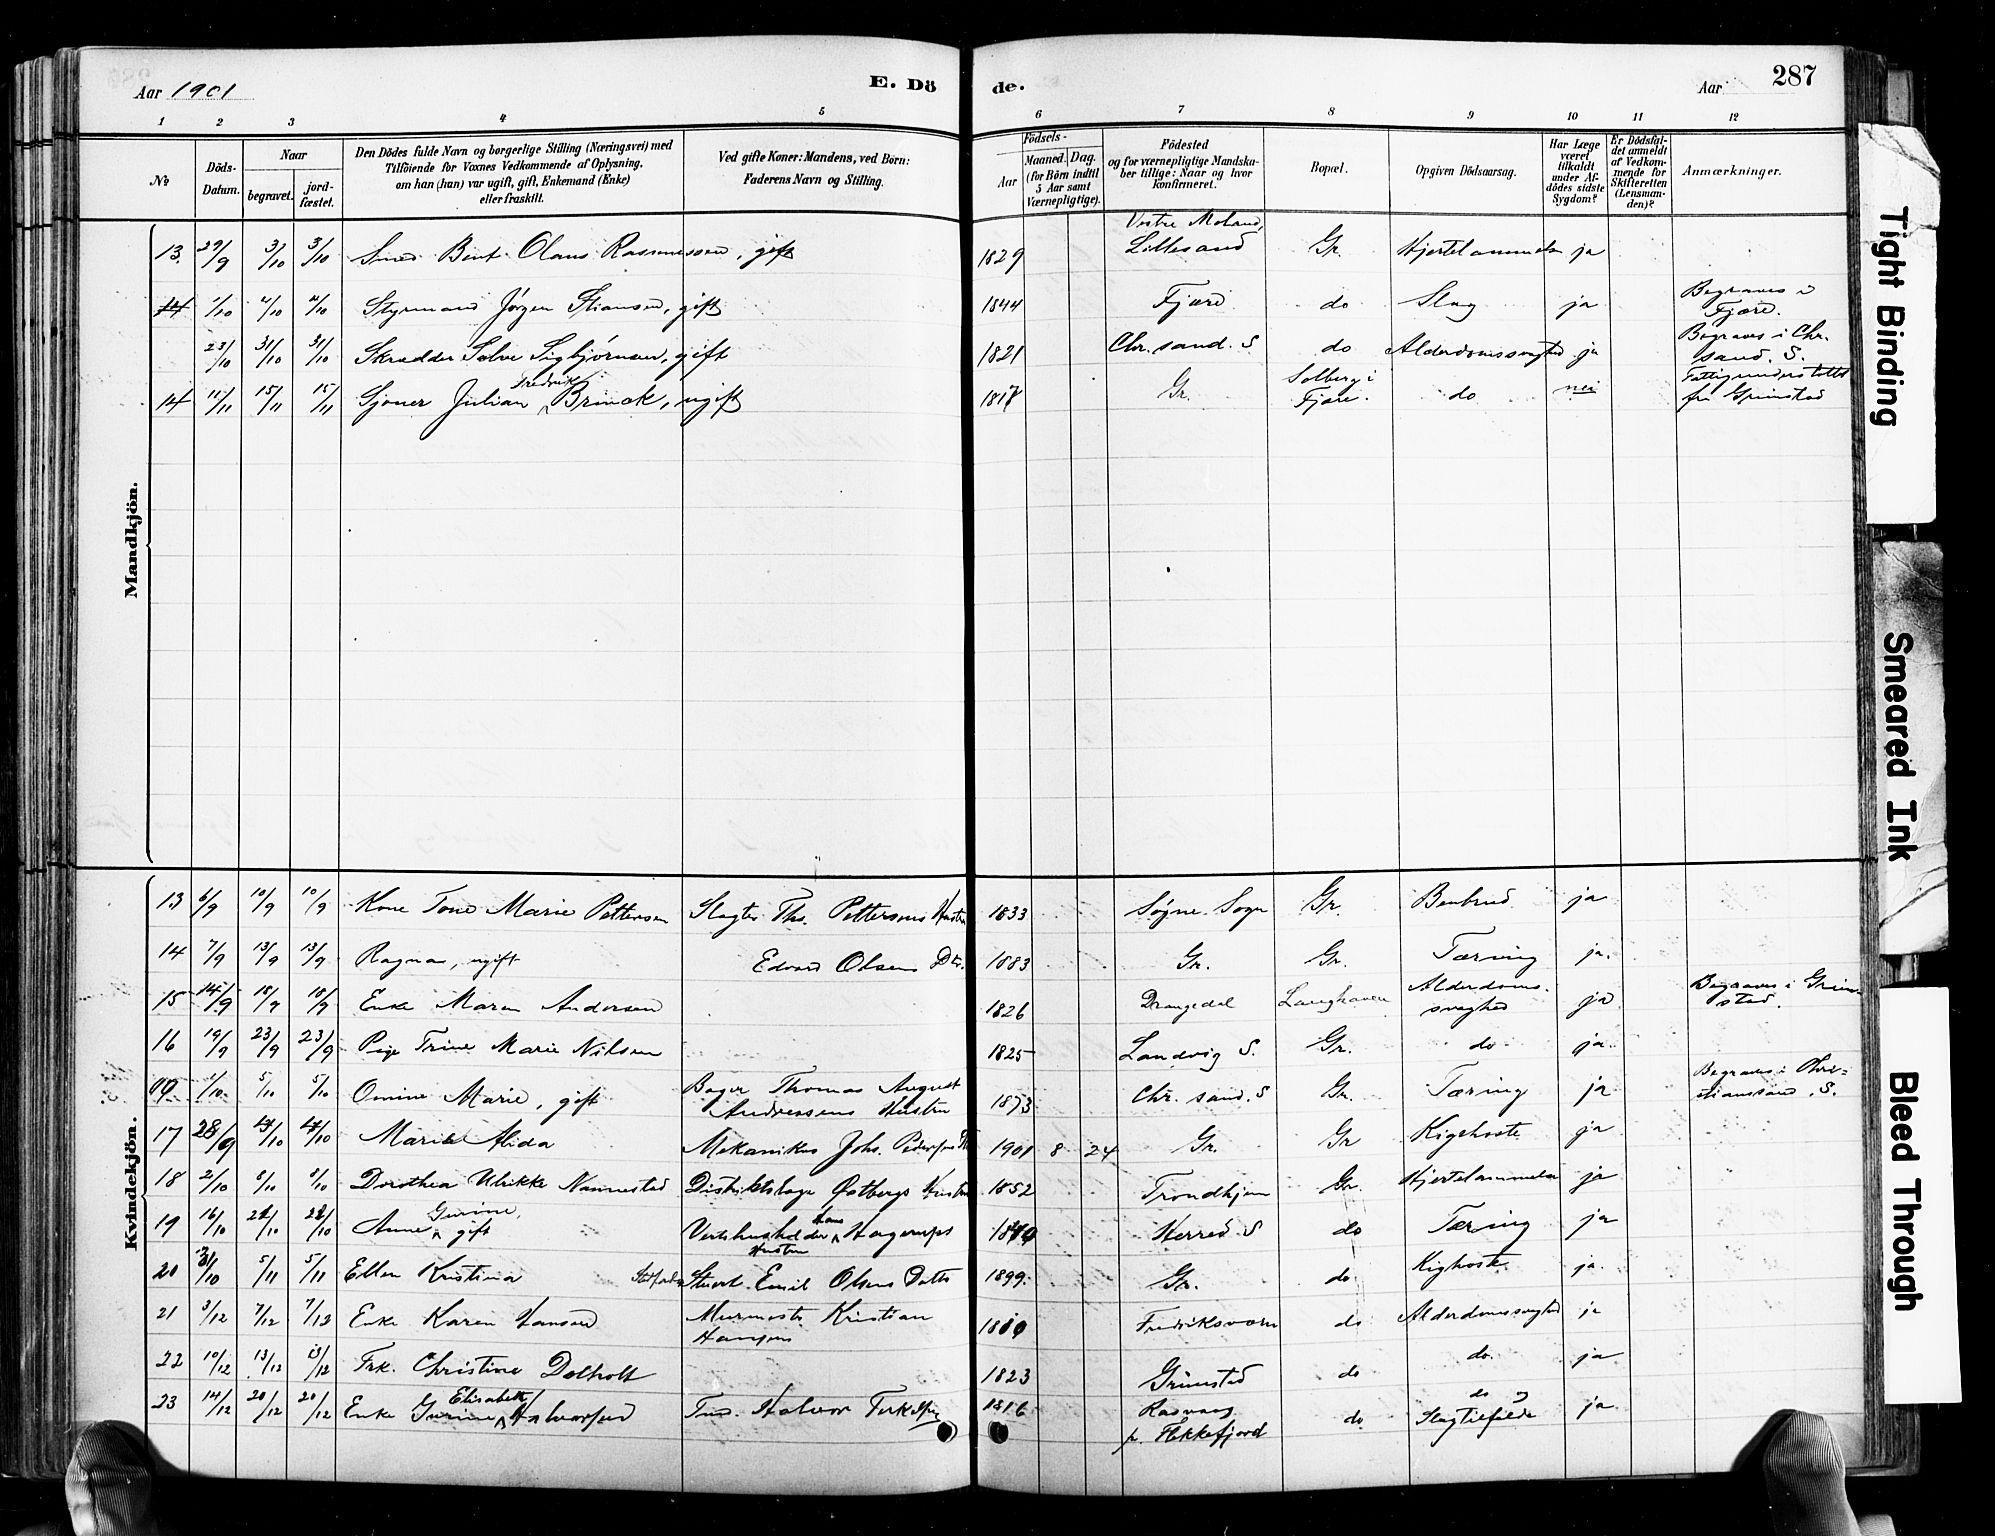 Aar 1901
E. Dö
de.
Aar
287
1 2 3 4 5 6 7 8 9 10 11 12
№
Döds-Datum.
Naar
begravet.
jord-fæstet.
Den Dödes fulde Navn og borgerlige Stilling (Næringsvei) med
Tilföiende for Voxnes Vedkommende af Oplysning,
om han (hun) var ugift, gift, Enkemand (Enke)
eller fraskilt.
Ved gifte Koner: Mandens, ved Börn:
Faderens Navn og Stilling.
Födsels-
Aar
Maaned. Dag.
(for Börn indtil
5 Aar samt
Værnepligtige).
Födested
og for værnepligtige Mandska-
ber tillige: Naar og hvor
konfirmeret.
Bopæl.
Opgiven Dödsaarsag.
Har Læge
været
tilkaldt
under Af-
dödes sidste
Sygdom?
Er Dödsfal-
det anmeldt
af Vedkom-
mende for
Skifteretten
(Lensman-
den)?
Anmærkninger.
Mandkjön.
13. 29/9 3/10 3/10 Smed Bent Olaus Rasmussen, gift 1829 Vestre Moland, Lillesand Gr. Hjertelammelse ja
14 1/10 4/10 4/10 Styrmand Jørgen Stiansen, gift 1844 Fjære do Slag ja Begraves i Fjære.
23/10 31/10 31/10 Skrædder Salve Sigbjørnsen, gift 1821 Chr.sand. S do Alderdomssvaghed ja Begraves i Chr.sand. S.
14 11/11 15/11 15/11 Sjømer Julian Fredrik Brinck, ugift 1817 Gr. Solberg i Fjære. do nei Fattigunderstøttet fra Grimstad
Kvindekjön.
13 6/9 10/9 10/9 Kone Tone Marie Pettersen Slagter Ths. Pettersens Hustru 1833 Søgne Sogn Gr. Benbrud ja
14 7/9 13/9 13/9 Ragna, ugift Edvard Olsens Dtr. 1883 Gr. Gr. Tæring ja.
15 14/9 18/9 18/9 Enke Maren Andersen 1826 Drangedal Langhaven Alderdoms-svaghed ja Begraves i Grimstad.
16 19/9 23/9 23/9 Pige Trine Marie Nilsen 1825 Landvig S. Gr. do ja.
1/10 5/10 5/10 Omine Marie, gift Bager Thomas August Andreasens Hustru 1873 Chr. sand. S Gr. Tæring ja Begraves i Christianssand. S.
17 28/9 4/10 4/10 Marie Alida Mekanikus Johs. 1901 8 24 Gr. Gr Kighoste ja
18 2/10 8/10 8/10 Dorothea Ulrikke Nannestad Distriktslæge Qvtbergs Hustru 1852 Trondhjem Gr. Hjertelammelse ja
19 16/10 22/10 22/10 Anne Gurine, gift Vertshusholder Hans Hagerups Hustru Herred. S do Tæring ja
20 31/10 5/11 5/11 Ellen Kristina Stuert Emil Olsens Datter 1899 Gr. do Kighoste ja.
21 3/12 7/12 7/12 Enke Karen Hansen Murmester Kristian Hansens Fredriksværn do Alderdomssvaghed ja
22 10/12 13/12 13/12 Frk. Christine Dolholt 1823 Grimstad do do. ja
23 14/12 20/12 20/12 Enke Gurine Elisabeth Halvorsen Halvor Terkelsen 1816 Rasvaag p. Flekkefjord do do og Slagtilfælde ja
Tight Binding
Smeared Ink
Bleed Through